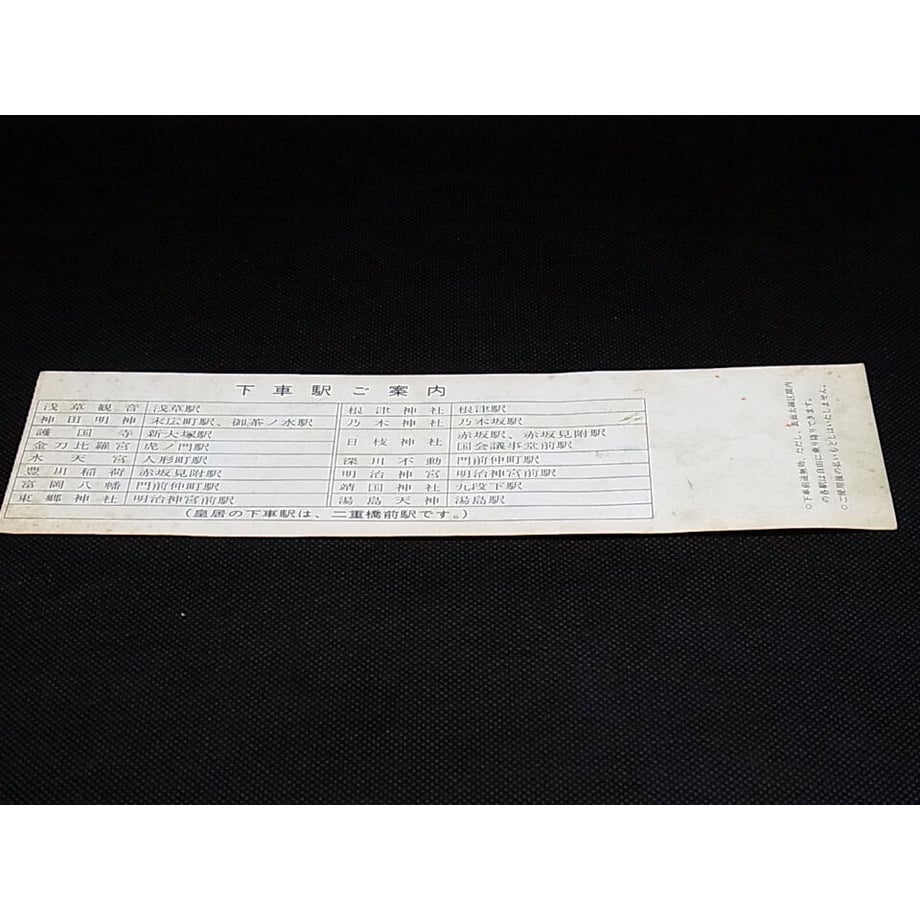 下車駅ご案内
浅草観音 浅草駅
神田明神 末広町駅、御茶ノ水駅
護国寺 新大塚駅
金刀比羅宮 虎ノ門駅
水天宮 人形町駅
豊川稲荷 赤坂見附駅
富岡八幡 門前仲町駅
東郷神社 明治神宮前駅
根津神社 根津駅
乃木神社 乃木坂駅
日枝神社 赤坂駅、赤坂見附駅
国会議事堂前駅
深川不動 門前仲町駅
明治神宮 明治神宮前駅
靖国神社 九段下駅
湯島天神 湯島駅
(皇居の下車駅は、二重橋前駅です。)
○下車前途無効、ただし、裏面太線区間内
の各駅は自由に乗り降りできます。
○ご使用後の払いもどしはいたしません。